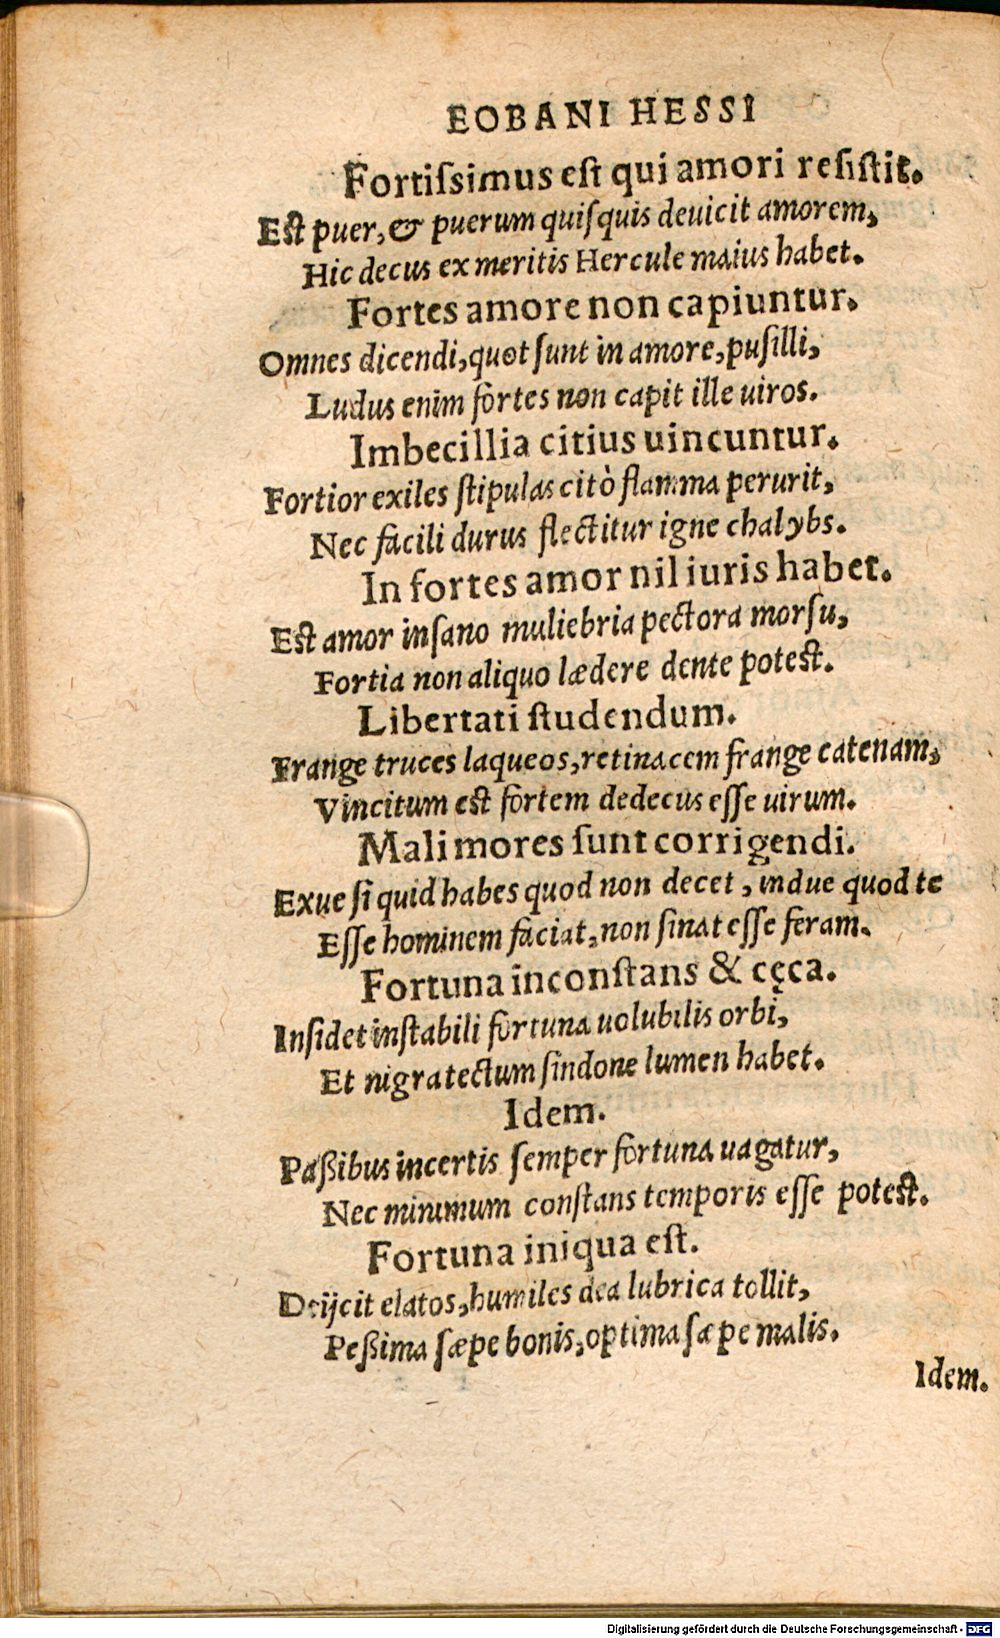 EOBANI HESSI
Fortiſsimus eſt qui amori reſiſtit.
Eſt puer, & puerum quiſquis deuicit amorem,
Hic decus ex meritis Hercule maius habet.
Fortes amore non capiuntur.
Omnes dicendi, quot ſunt in amore, puſilli,
Ludus enim fortes non capit ille uiros.
Imbecillia citius uincuntur.
Fortior exiles ſtipulas citò flamma perurit,
Nec facili durus flectitur igne chalybs.
In fortes amor nil iuris habet.
Eſt amor inſano muliebria pectora morſu,
Fortia non aliquo lædere dente poteſt.
Libertati ſtudendum.
Frange truces laqueos, retinacem frange catenam,
Vincitum eſt fortem dedecus eſſe uirum.
Mali mores ſunt corrigendi.
Exue ſi quid habes quod non decet, indue quod te
Eſſe hominem faciat, non ſinat eſſe feram.
Fortuna inconſtans & cęca.
Inſidet inſtabili fortuna uolubilis orbi,
Et nigra tectum ſindone lumen habet.
Idem.
Paßibus incertis ſemper fortuna uagatur,
Nec minimum conſtans temporis eſſe poteſt.
Fortuna iniqua eſt.
Deijcit elatos, humiles dea lubrica tollit,
Peßima ſæpe bonis, optima ſæpe malis.
Idem.
Digitalisierung gefördert durch die Deutsche Forschungsgemeinschaft - DFG